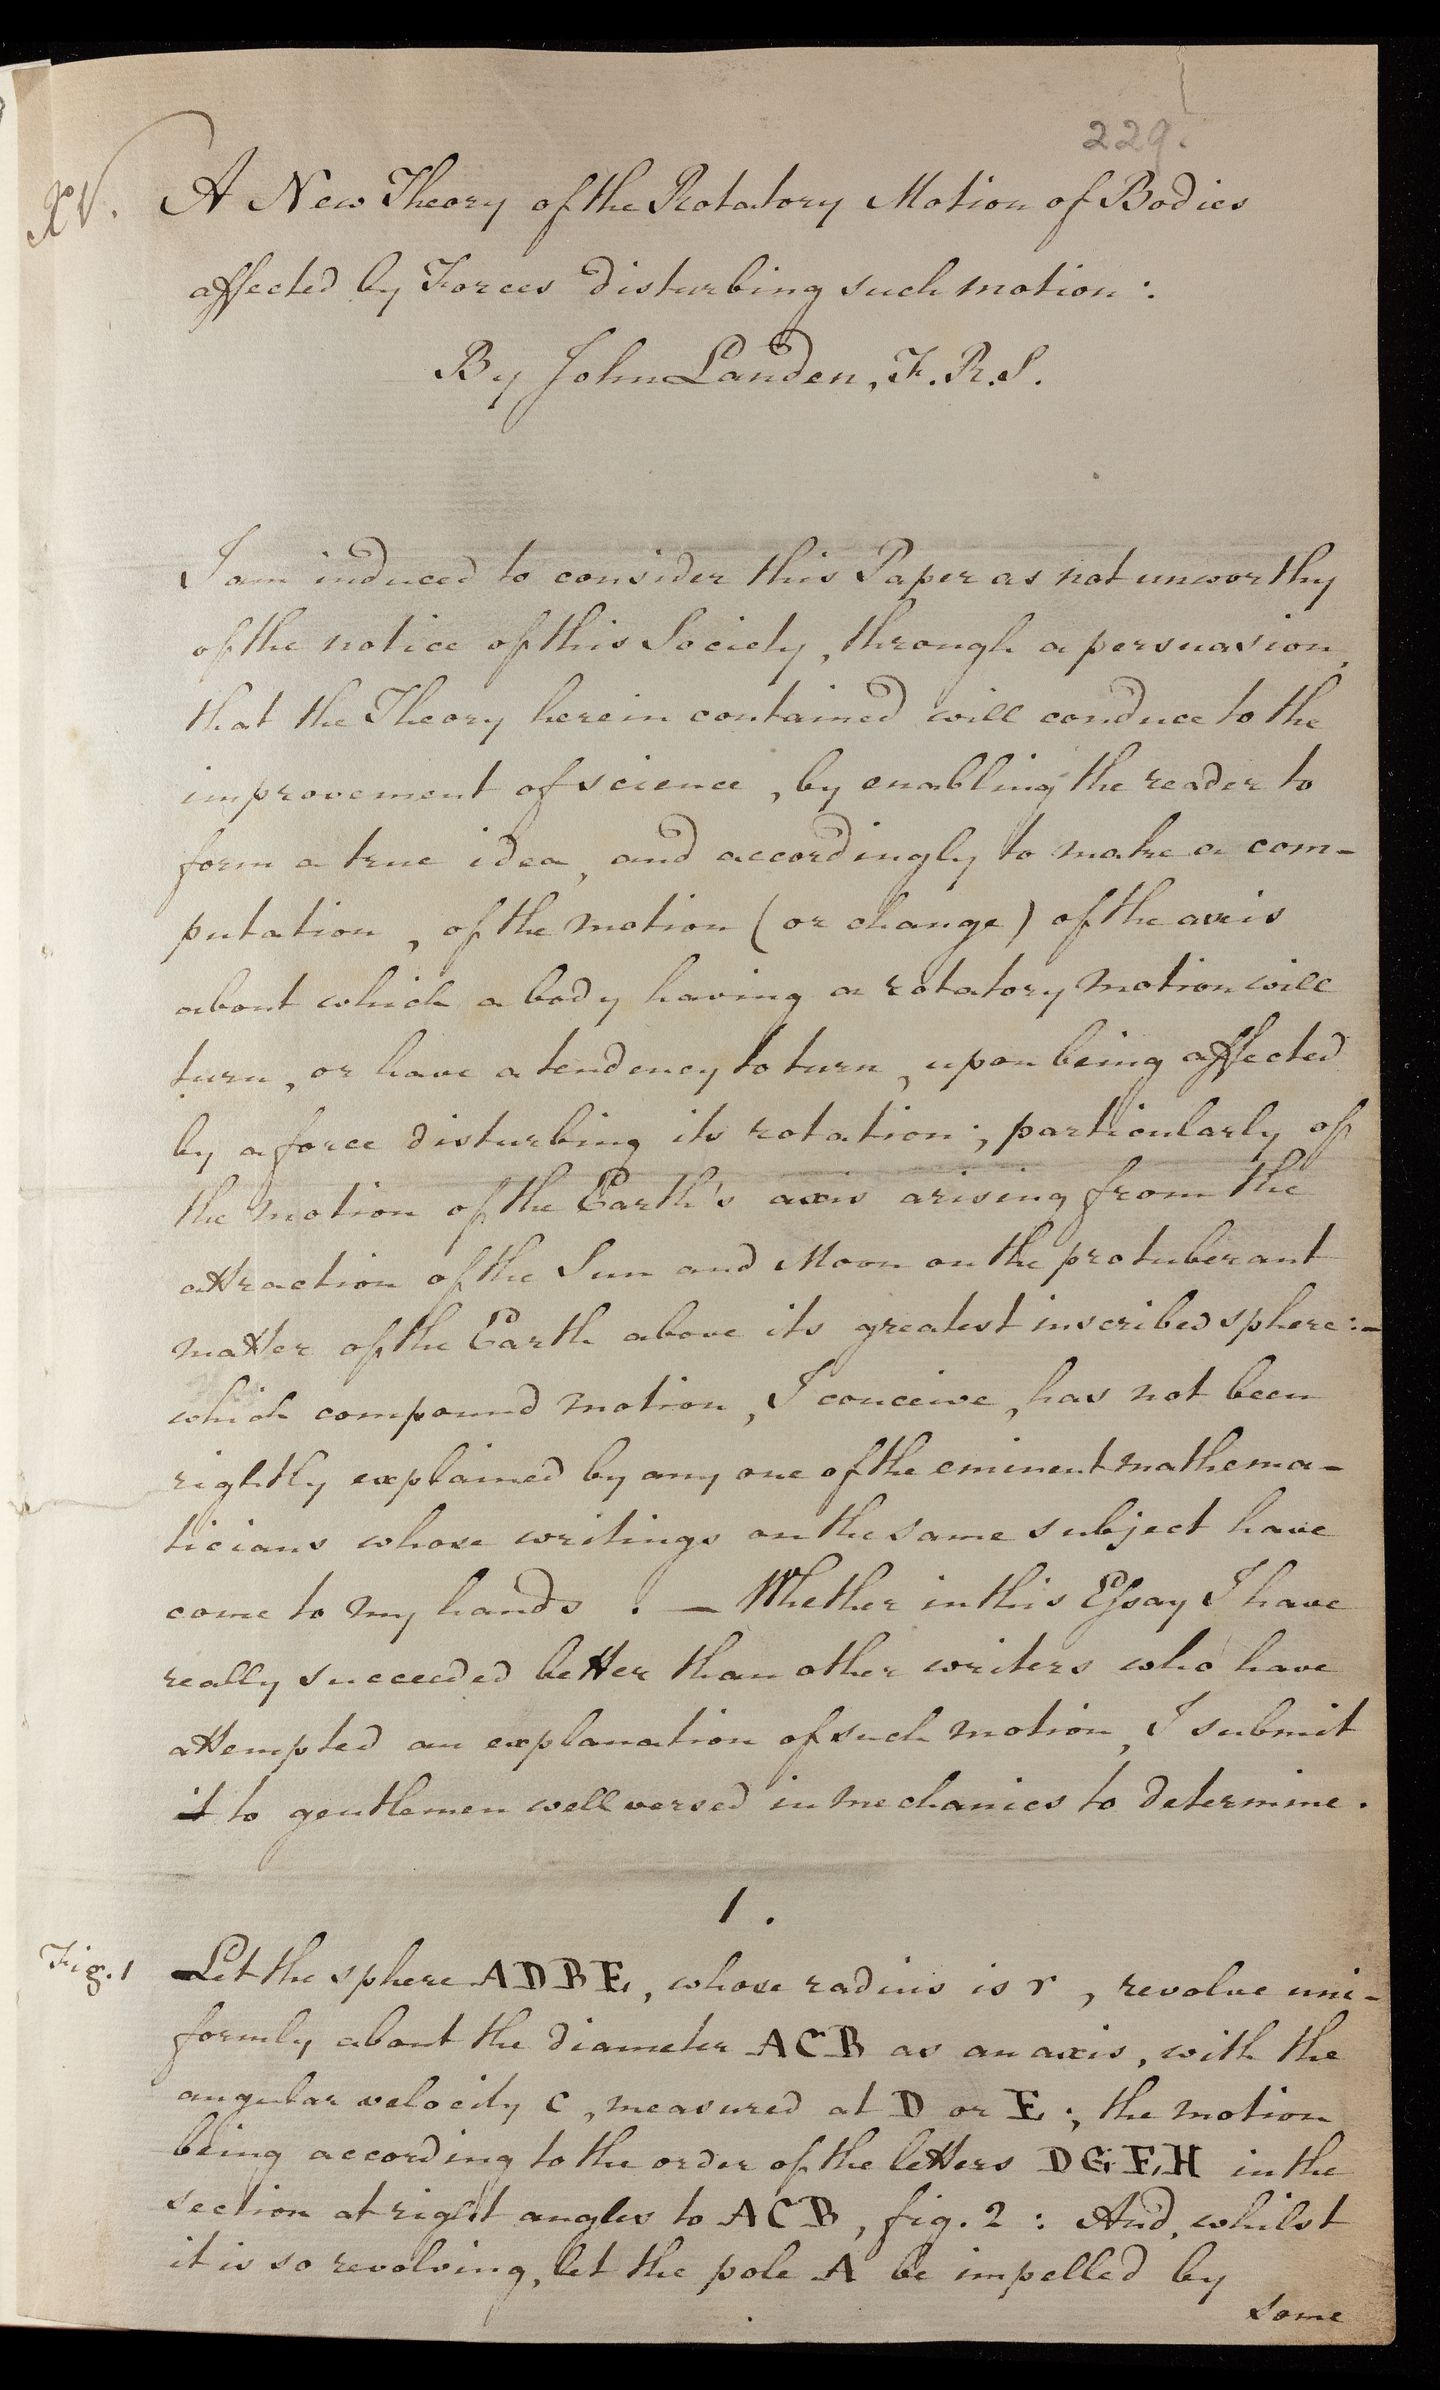 229.
XV. A New Theory of the Rotatory Motion of Bodies
affected by Forces disturbing such motion:
By John Landen, F.R.S.
I am induced to consider this Paper as not unworthy
of the notice of this Society, through a persuasion,
that the Theory herein contained will conduce to the
improvement of science, by enabling the reader to
form a true idea, and accordingly to make a com-
putation, of the motion (or change) of the axis
about which a body having a rotatory motion will
turn, or have a tendency to turn, upon being affected
by a force disturbing its rotation; particularly of
the motion of the Earth's axis arising from the
attraction of the Sun and Moon on the protuberant
matter of the Earth above its greatest inscribed sphere:-
which compound motion, I conceive, has not been
rightly explained by any one of the eminent mathema-
ticians whose writings on the same subject have
come to my hands. — Whether in this Eſsay I have
really succeeded better than other writers who have
attempted an explanation of such motion, I submit
it to gentlemen well versed in mechanics to determine.
1.
Fig. 1 Let the sphere ADBE, whose radius is r, revolve uni-
formly about the diameter ACB as an axis, with the
angular velocity c, measured at D or E; the motion
being according to the order of the letters DGEH in the
section at right angles to ACB, fig. 2: And, whilst
it is so revolving, let the pole A be impelled by
some